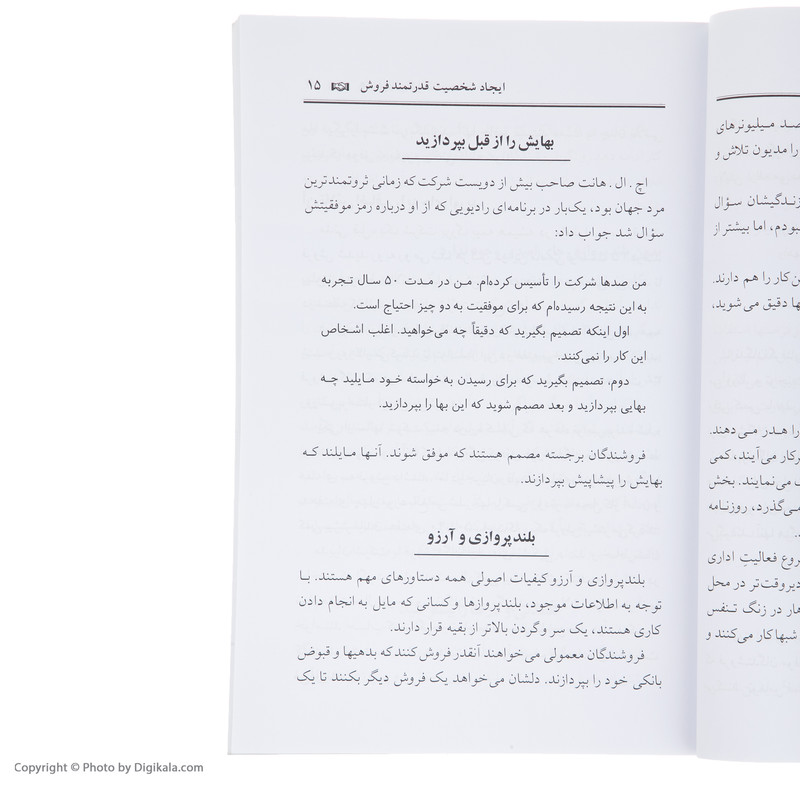 ایجاد شخصیت قدرتمند فروش ۱۵
بهایش را از قبل بپردازید
اچ . ال . هانت صاحب بیش از دویست شرکت که زمانی ثروتمندترین
مرد جهان بود، یک‌بار در برنامه‌ای رادیویی که از او درباره رمز موفقیتش
سؤال شد جواب داد:
من صدها شرکت را تأسیس کرده‌ام. من در مدت ۵۰ سال تجربه
به این نتیجه رسیده‌ام که برای موفقیت به دو چیز احتیاج است.
اول اینکه تصمیم بگیرید که دقیقاً چه می‌خواهید. اغلب اشخاص
این کار را نمی‌کنند.
دوم، تصمیم بگیرید که برای رسیدن به خواسته خود مایلید چه
بهایی بپردازید و بعد مصمم شوید که این بها را بپردازید.
فروشندگان برجسته مصمم هستند که موفق شوند. آنها مایلند که
بهایش را پیشاپیش بپردازند.
بلندپروازی و آرزو
بلندپروازی و آرزو کیفیات اصولی همه دستاورهای مهم هستند. با
توجه به اطلاعات موجود، بلندپروازها و کسانی که مایل به انجام دادن
کاری هستند، یک سر و گردن بالاتر از بقیه قرار دارند.
فروشندگان معمولی می‌خواهند آنقدر فروش کنند که بدهیها و قبوض
بانکی خود را بپردازند. دلشان می‌خواهد یک فروش دیگر بکنند تا یک
صد میلیونرهای
را مدیون تلاش و
زندگیشان سؤال
نبودم، اما بیشتر از
ن کار را هم دارند.
ها دقیق می شوید،
را هدر می‌دهند.
رکار می‌آیند، کمی
می‌نمایند. بخش
می‌گذرد، روزنامه
روع فعالیتِ اداری
دیروقت‌تر در محل
هار در زنگ تنفس
شبها کار می‌کنند و
Copyright © Photo by Digikala.com